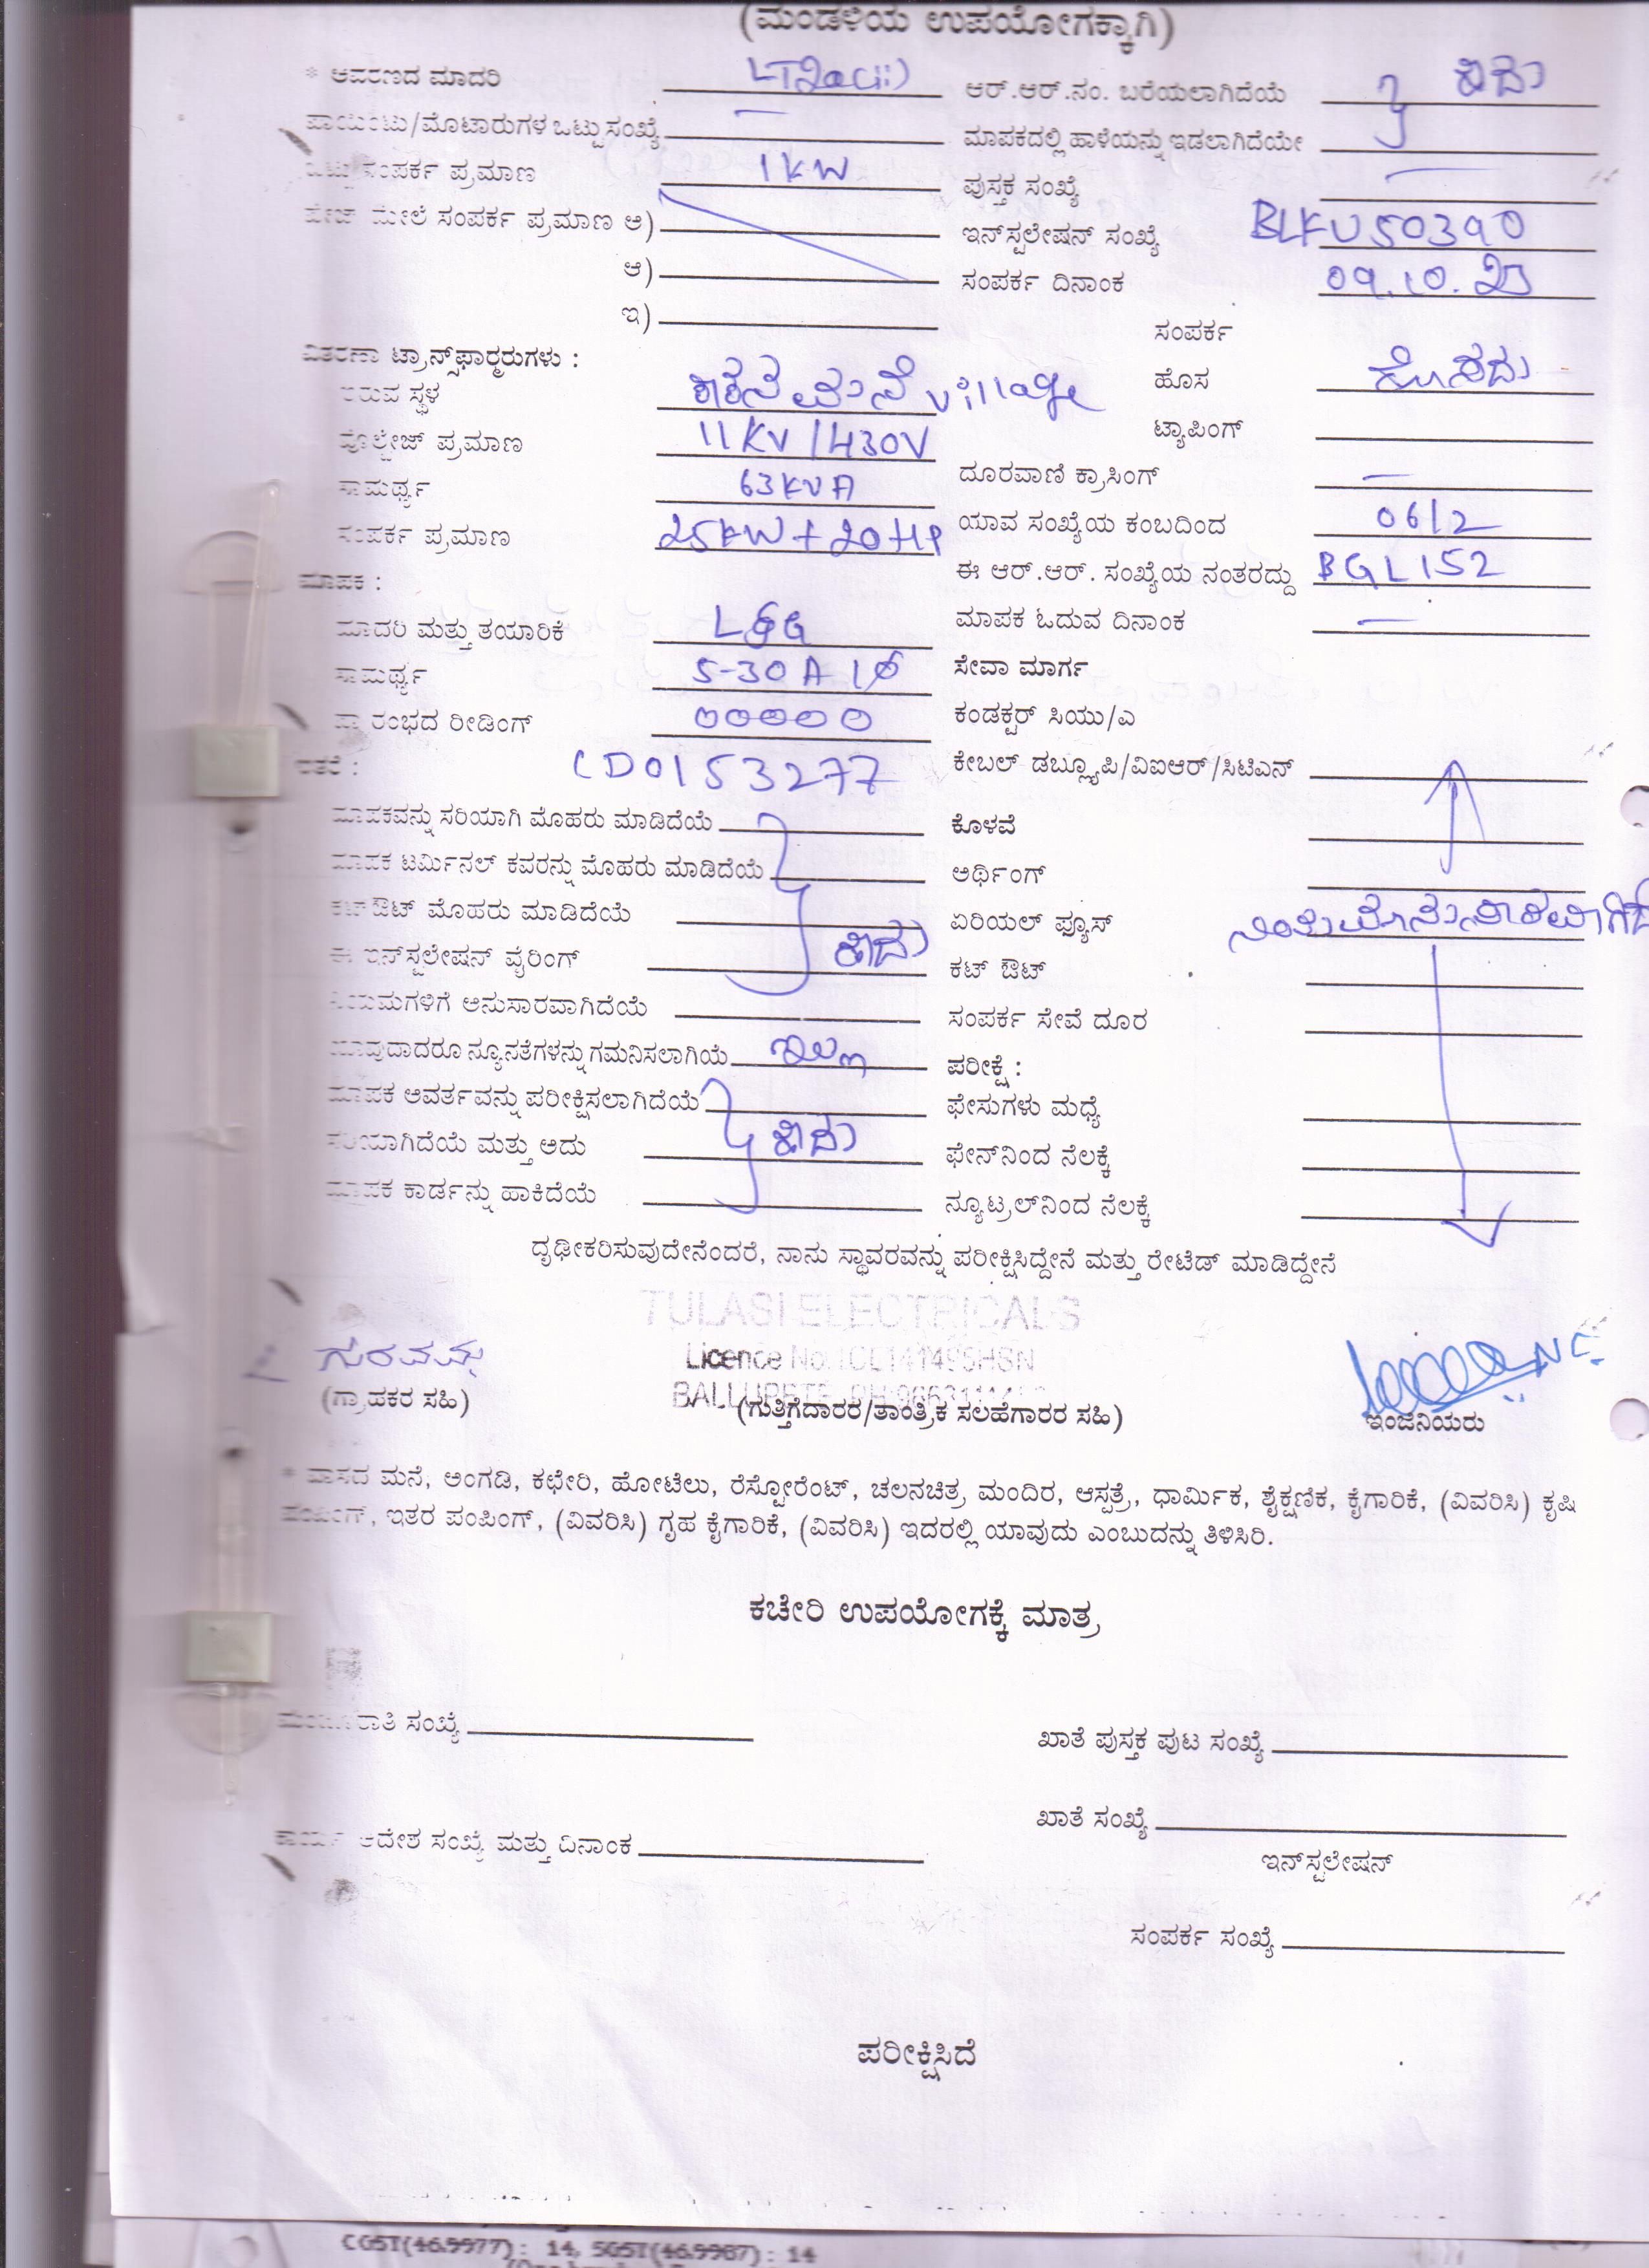 (ಮಂಡಳಿಯ ಉಪಯೋಗಕ್ಕಾಗಿ)
* ಆವರಣದ ಮಾದರಿ LT2a(ii) ಆರ್.ಆರ್.ನಂ. ಬರೆಯಲಾಗಿದೆಯೆ ಹೌದು
ಪಾಯಿಂಟು/ಮೊಟಾರುಗಳ ಒಟ್ಟು ಸಂಖ್ಯೆ — ಮಾಪಕದಲ್ಲಿ ಹಾಳೆಯನ್ನು ಇಡಲಾಗಿದೆಯೇ
ಒಟ್ಟು ಸಂಪರ್ಕ ಪ್ರಮಾಣ 1KW ಪುಸ್ತಕ ಸಂಖ್ಯೆ —
ಪೇಜ್ ಮೇಲೆ ಸಂಪರ್ಕ ಪ್ರಮಾಣ ಅ) ಇನ್‌ಸ್ಟಲೇಷನ್ ಸಂಖ್ಯೆ BLKU50390
ಆ) ಸಂಪರ್ಕ ದಿನಾಂಕ 09.10.25
ಇ) ಸಂಪರ್ಕ
ವಿತರಣಾ ಟ್ರಾನ್ಸ್‌ಫಾರ್ಮರುಗಳು :
ಇರುವ ಸ್ಥಳ village ಹೊಸ ಹೊಸದು
ವೊಲ್ಟೇಜ್ ಪ್ರಮಾಣ 11KV/430V ಟ್ಯಾಪಿಂಗ್
ಸಾಮರ್ಥ್ಯ 63KVA ದೂರವಾಣಿ ಕ್ರಾಸಿಂಗ್ —
ಸಂಪರ್ಕ ಪ್ರಮಾಣ 25KW+20HP ಯಾವ ಸಂಖ್ಯೆಯ ಕಂಬದಿಂದ 06/2
ಮಾಪಕ : ಈ ಆರ್.ಆರ್. ಸಂಖ್ಯೆಯ ನಂತರದ್ದು BGL152
ಮಾದರಿ ಮತ್ತು ತಯಾರಿಕೆ L&G ಮಾಪಕ ಓದುವ ದಿನಾಂಕ —
ಸಾಮರ್ಥ್ಯ 5-30A 1Ø ಸೇವಾ ಮಾರ್ಗ
ಪ್ರಾರಂಭದ ರೀಡಿಂಗ್ 00000 ಕಂಡಕ್ಟರ್ ಸಿಯು/ಎ
ಇತರೆ : CD0153277 ಕೇಬಲ್ ಡಬ್ಲ್ಯೂಪಿ/ವಿಐಆರ್/ಸಿಟಿಎನ್
ಮಾಪಕವನ್ನು ಸರಿಯಾಗಿ ಮೊಹರು ಮಾಡಿದೆಯೆ ಕೊಳವೆ
ಮಾಪಕ ಟರ್ಮಿನಲ್ ಕವರನ್ನು ಮೊಹರು ಮಾಡಿದೆಯೆ ಅರ್ಥಿಂಗ್
ಕಟ್‌ಔಟ್ ಮೊಹರು ಮಾಡಿದೆಯೆ ಏರಿಯಲ್ ಫ್ಯೂಸ್
ಈ ಇನ್‌ಸ್ಟಲೇಷನ್ ವೈರಿಂಗ್ ಹೌದು ಕಟ್ ಔಟ್
ನಿಯಮಗಳಿಗೆ ಅನುಸಾರವಾಗಿದೆಯೆ ಸಂಪರ್ಕ ಸೇವೆ ದೂರ
ಯಾವುದಾದರೂ ನ್ಯೂನತೆಗಳನ್ನು ಗಮನಿಸಲಾಗಿಯೆ ಇಲ್ಲ ಪರೀಕ್ಷೆ :
ಮಾಪಕ ಆವರ್ತವನ್ನು ಪರೀಕ್ಷಿಸಲಾಗಿದೆಯೆ ಫೇಸುಗಳು ಮಧ್ಯೆ
ಸರಿಯಾಗಿದೆಯೆ ಮತ್ತು ಅದು ಹೌದು ಫೇನ್‌ನಿಂದ ನೆಲಕ್ಕೆ
ಮಾಪಕ ಕಾರ್ಡನ್ನು ಹಾಕಿದೆಯೆ ನ್ಯೂಟ್ರಲ್‌ನಿಂದ ನೆಲಕ್ಕೆ
ದೃಢೀಕರಿಸುವುದೇನೆಂದರೆ, ನಾನು ಸ್ಥಾವರವನ್ನು ಪರೀಕ್ಷಿಸಿದ್ದೇನೆ ಮತ್ತು ರೇಟೆಡ್ ಮಾಡಿದ್ದೇನೆ
TULASI ELECTRICALS
Licence No. ICL141495HSN
BALLUPETE
(ಗ್ರಾಹಕರ ಸಹಿ) (ಗುತ್ತಿಗೆದಾರರ/ತಾಂತ್ರಿಕ ಸಲಹೆಗಾರರ ಸಹಿ) ಇಂಜಿನಿಯರು
* ವಾಸದ ಮನೆ, ಅಂಗಡಿ, ಕಛೇರಿ, ಹೋಟೆಲು, ರೆಸ್ಟೋರೆಂಟ್, ಚಲನಚಿತ್ರ ಮಂದಿರ, ಆಸ್ಪತ್ರೆ, ಧಾರ್ಮಿಕ, ಶೈಕ್ಷಣಿಕ, ಕೈಗಾರಿಕೆ, (ವಿವರಿಸಿ) ಕೃಷಿ
ಪಂಪಿಂಗ್, ಇತರ ಪಂಪಿಂಗ್, (ವಿವರಿಸಿ) ಗೃಹ ಕೈಗಾರಿಕೆ, (ವಿವರಿಸಿ) ಇದರಲ್ಲಿ ಯಾವುದು ಎಂಬುದನ್ನು ತಿಳಿಸಿರಿ.
ಕಚೇರಿ ಉಪಯೋಗಕ್ಕೆ ಮಾತ್ರ
ಸಂಖ್ಯೆ ಖಾತೆ ಪುಸ್ತಕ ಪುಟ ಸಂಖ್ಯೆ
ಖಾತೆ ಸಂಖ್ಯೆ
ಆದೇಶ ಸಂಖ್ಯೆ ಮತ್ತು ದಿನಾಂಕ
ಇನ್‌ಸ್ಟಲೇಷನ್
ಸಂಪರ್ಕ ಸಂಖ್ಯೆ
ಪರೀಕ್ಷಿಸಿದೆ
CGST(46.9977): 14, SGST(46.9987): 14